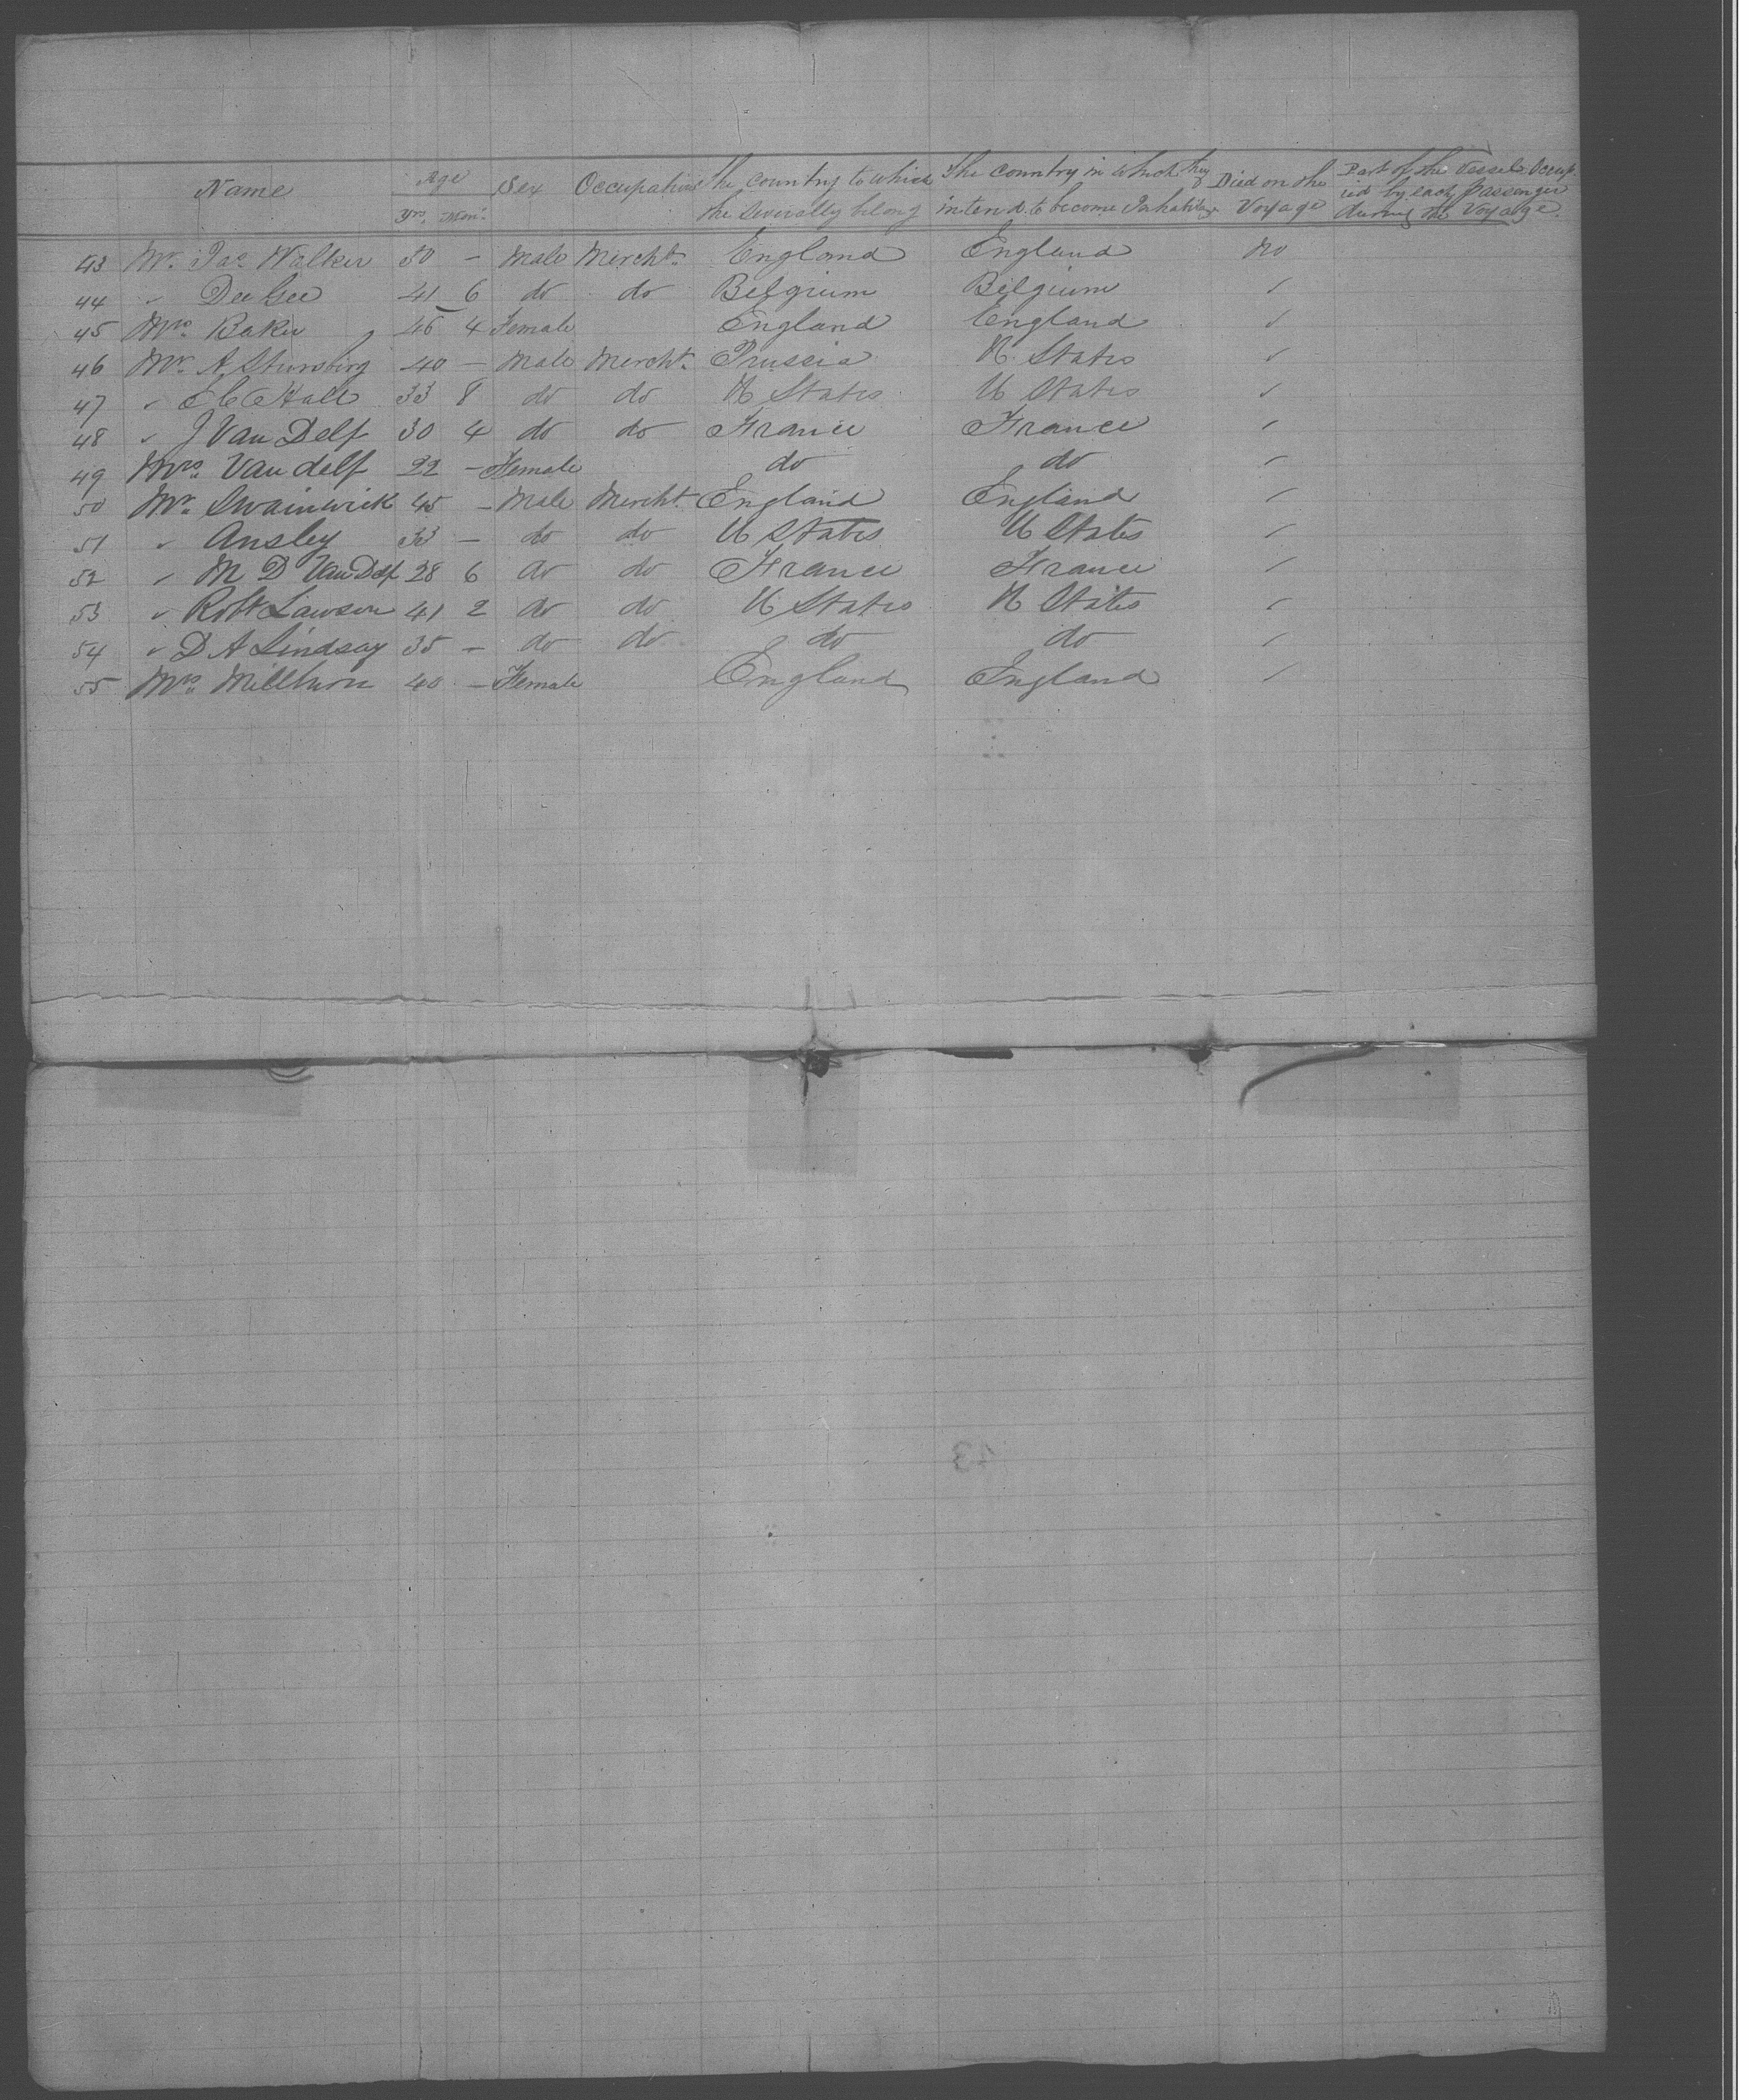 Name Age Sex Occupation The country to which The country in which they Died on the Part of the Vessel Occup
Yrs. Mon. the severally belong intend to become Inhabitants Voyage ied by each passenger
during the Voyage.
43 Mr. Jas. Walker 50 - Male Mercht. England England no
44 " 41 6 do do Belgium Belgium "
45 Mrs. Baker 46 4 Female England England "
46 Mr. A. Stursberg 40 - Male Mercht. Prussia U. States "
47 " E C Hall 33 8 do do U States U States "
48 " J Van Delf 30 4 do do France France "
49 Mrs. Van delf 22 - Female do do "
50 Mr. Swainwick 45 - Male Mercht. England England "
51 " Ansley 33 - do do U States U States "
52 " M D Van Delf 28 6 do do France France "
53 " Robt Lawson 41 2 do do U States U States "
54 " D A Lindsay 35 - do do do do "
55 Mrs. 40 - Female England England "
43